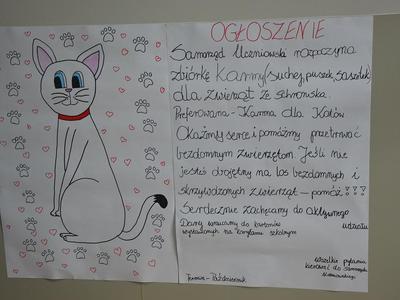 OGŁOSZENIE
Samorząd Uczniowski rozpoczyna
zbiórkę karmy (suchej, puszek, saszetek)
dla zwierząt ze schroniska.
Preferowana - Karma dla Kotów
Okażmy serce i pomóżmy przetrwać
bezdomnym zwierzętom. Jeśli nie
jesteś obojętny na los bezdomnych i
skrzywdzonych zwierząt - pomóż!!!
Serdecznie zachęcamy do aktywnego
udziału
Dary wrzucamy do kartonów
wystawionych na korytarzu szkolnym
Wszelkie pytania
kierować do samorządu
Uczniowskiego
Termin - Październik